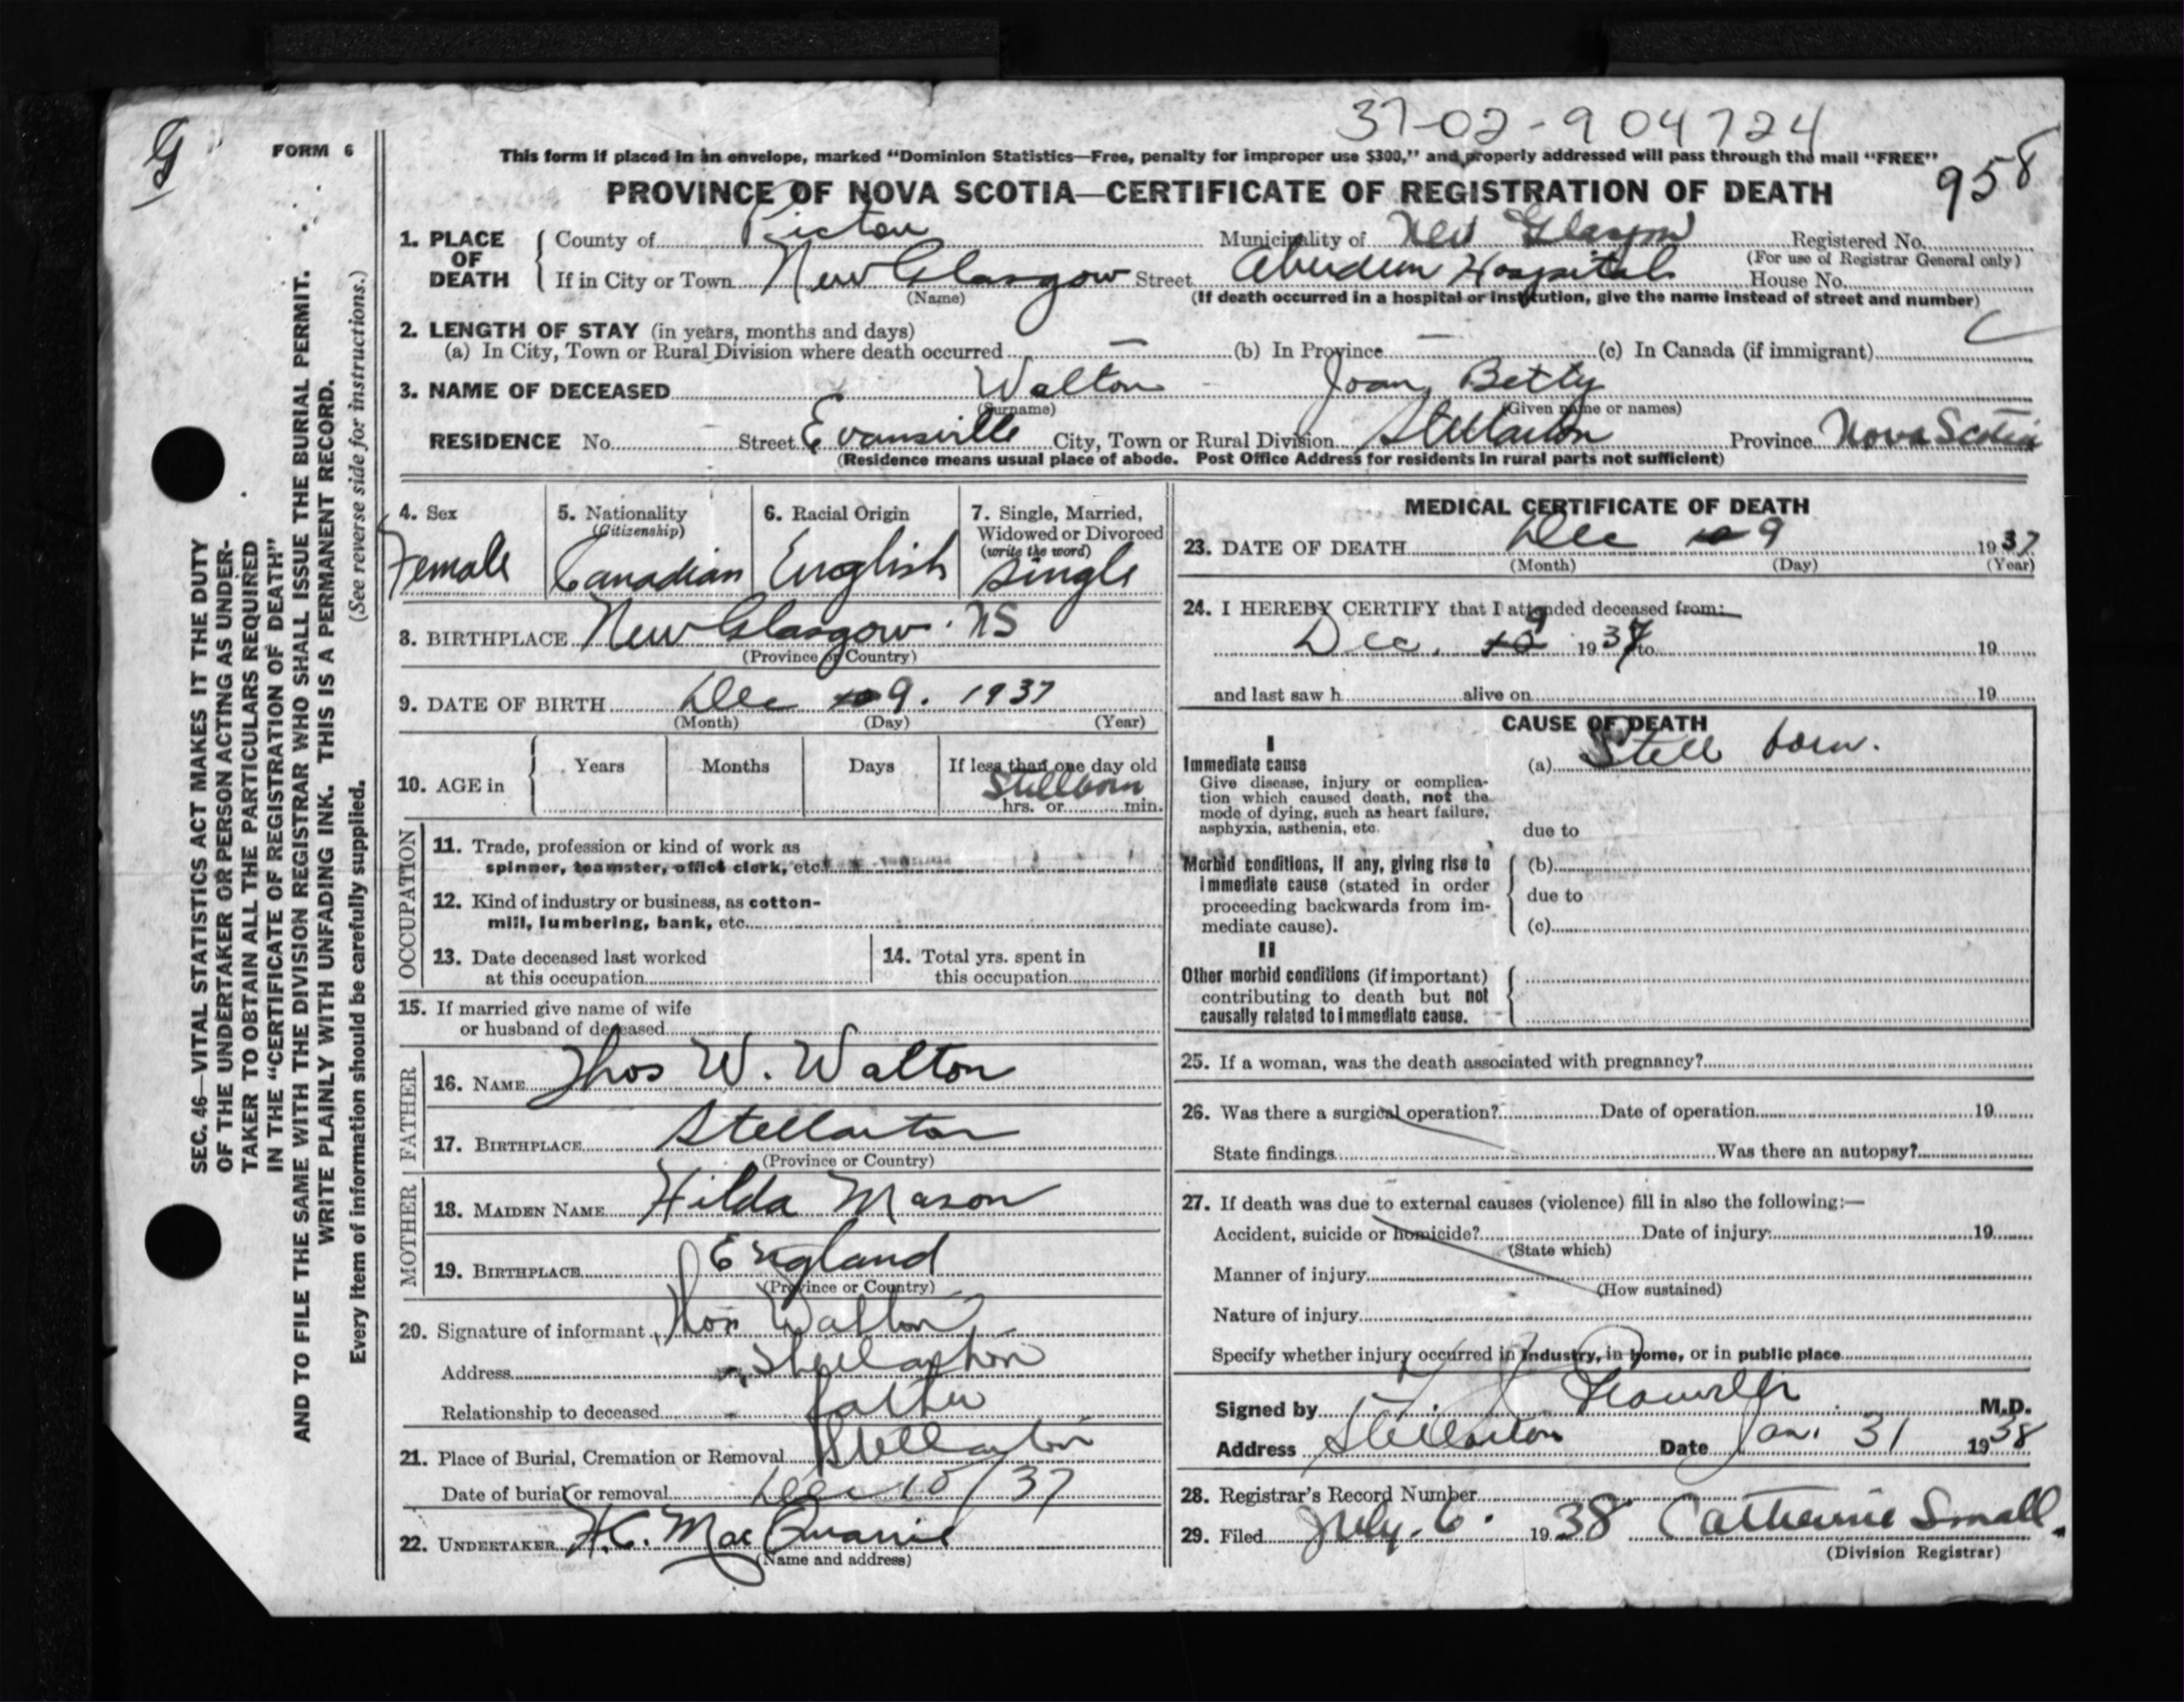 37-02-904724
G
FORM 6
This form if placed in an envelope, marked “Dominion Statistics—Free, penalty for improper use $300,” and properly addressed will pass through the mail “FREE”
958
PROVINCE OF NOVA SCOTIA—CERTIFICATE OF REGISTRATION OF DEATH
1. PLACE OF DEATH
County of Pictou Municipality of New Glasgow Registered No.
(For use of Registrar General only)
If in City or Town New Glasgow Street Aberdeen Hospital House No.
(Name) (If death occurred in a hospital or institution, give the name instead of street and number)
2. LENGTH OF STAY (in years, months and days)
(a) In City, Town or Rural Division where death occurred — (b) In Province — (c) In Canada (if immigrant)
3. NAME OF DECEASED Walton Joan Betty
(Surname) (Given name or names)
RESIDENCE No. Street Evansville City, Town or Rural Division Stellarton Province Nova Scotia
(Residence means usual place of abode. Post Office Address for residents in rural parts not sufficient)
4. Sex
Female
5. Nationality
(Citizenship)
Canadian
6. Racial Origin
English
7. Single, Married,
Widowed or Divorced
(write the word)
Single
8. BIRTHPLACE New Glasgow. NS
(Province or Country)
9. DATE OF BIRTH Dec 10 9. 1937
(Month) (Day) (Year)
10. AGE in
Years
Months
Days
If less than one day old
Stillborn
hrs. or min.
OCCUPATION
11. Trade, profession or kind of work as
spinner, teamster, office clerk, etc.
12. Kind of industry or business, as cotton-
mill, lumbering, bank, etc.
13. Date deceased last worked
at this occupation
14. Total yrs. spent in
this occupation
15. If married give name of wife
or husband of deceased
FATHER
16. NAME Thos W. Walton
17. BIRTHPLACE Stellarton
(Province or Country)
MOTHER
18. MAIDEN NAME Hilda Mason
19. BIRTHPLACE England
(Province or Country)
20. Signature of informant Thos Walton
Address Stellarton
Relationship to deceased father
21. Place of Burial, Cremation or Removal Stellarton
Date of burial or removal Dec 10/37
22. UNDERTAKER H.C. MacQuarrie
(Name and address)
MEDICAL CERTIFICATE OF DEATH
23. DATE OF DEATH Dec 10 9 1937
(Month) (Day) (Year)
24. I HEREBY CERTIFY that I attended deceased from:
Dec. 10 9 1937 to 19
and last saw h alive on 19
CAUSE OF DEATH
I
Immediate cause
Give disease, injury or complica-
tion which caused death, not the
mode of dying, such as heart failure,
asphyxia, asthenia, etc.
(a) Still born.
due to
Morbid conditions, if any, giving rise to
immediate cause (stated in order
proceeding backwards from im-
mediate cause).
(b)
due to
(c)
II
Other morbid conditions (if important)
contributing to death but not
causally related to immediate cause.
25. If a woman, was the death associated with pregnancy?
26. Was there a surgical operation? Date of operation 19
State findings Was there an autopsy?
27. If death was due to external causes (violence) fill in also the following:—
Accident, suicide or homicide? Date of injury 19
(State which)
Manner of injury
(How sustained)
Nature of injury
Specify whether injury occurred in industry, in home, or in public place
Signed by M.D.
Address Stellarton Date Jan. 31 1938
28. Registrar's Record Number
29. Filed July. 6. 1938 Catherine Small.
(Division Registrar)
SEC. 46—VITAL STATISTICS ACT MAKES IT THE DUTY
OF THE UNDERTAKER OR PERSON ACTING AS UNDER-
TAKER TO OBTAIN ALL THE PARTICULARS REQUIRED
IN THE “CERTIFICATE OF REGISTRATION OF DEATH”
AND TO FILE THE SAME WITH THE DIVISION REGISTRAR WHO SHALL ISSUE THE BURIAL PERMIT.
WRITE PLAINLY WITH UNFADING INK. THIS IS A PERMANENT RECORD.
Every item of information should be carefully supplied. (See reverse side for instructions.)